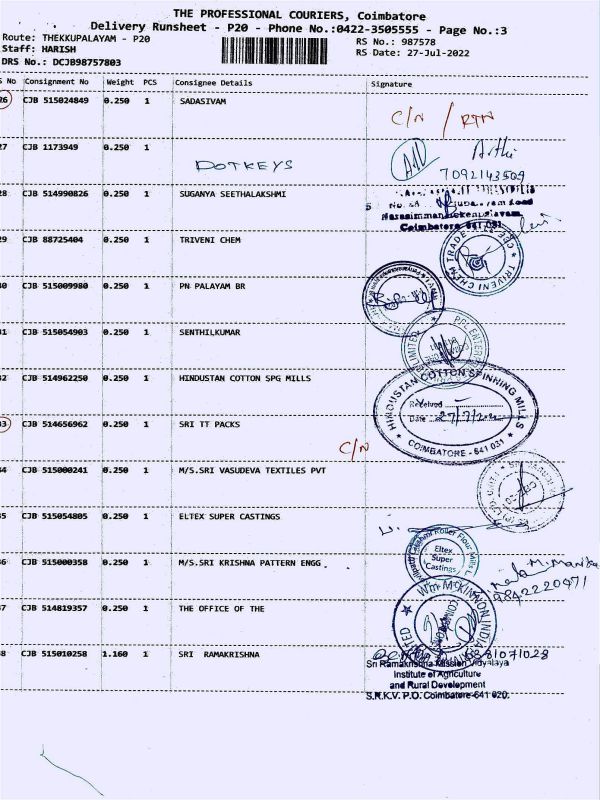 THE PROFESSIONAL COURIERS, Coimbatore
Delivery Runsheet - P20 - Phone No.:0422-3505555 - Page No.:3
Route: THEKKUPALAYAM - P20
RS No.: 987578
Staff: HARISH
RS Date: 27-Jul-2022
DRS No.: DCJB98757803
S No Consignment No Weight PCS Consignee Details Signature
26 CJB 515024849 0.250 1 SADASIVAM
C/N / RTN
27 CJB 1173949 0.250 1
DOTKEYS
Arthi
7092143509
28 CJB 514990826 0.250 1 SUGANYA SEETHALAKSHMI
Coimbatore-641 031
29 CJB 88725404 0.250 1 TRIVENI CHEM
TRIVENI CHEM TRADE
30 CJB 515009980 0.250 1 PN PALAYAM BR
31 CJB 515054903 0.250 1 SENTHILKUMAR
LIMITED
32 CJB 514962250 0.250 1 HINDUSTAN COTTON SPG MILLS
HINDUSTAN COTTON SPINNING MILLS
Received
Date 27/7/22
COIMBATORE - 641 031
33 CJB 514656962 0.250 1 SRI TT PACKS
C/N
34 CJB 515000241 0.250 1 M/S.SRI VASUDEVA TEXTILES PVT
35 CJB 515054805 0.250 1 ELTEX SUPER CASTINGS
Roller Flour Mills
Eltex
Super
Castings
36 CJB 515000358 0.250 1 M/S.SRI KRISHNA PATTERN ENGG
9842220971
37 CJB 514819357 0.250 1 THE OFFICE OF THE
Wm McKINNON INDIA
LIMITED
38 CJB 515010258 1.160 1 SRI RAMAKRISHNA
Sri Ramakrishna Mission Vidyalaya
Institute of Agriculture
and Rural Development
S.R.K.V. P.O. Coimbatore-641 020.